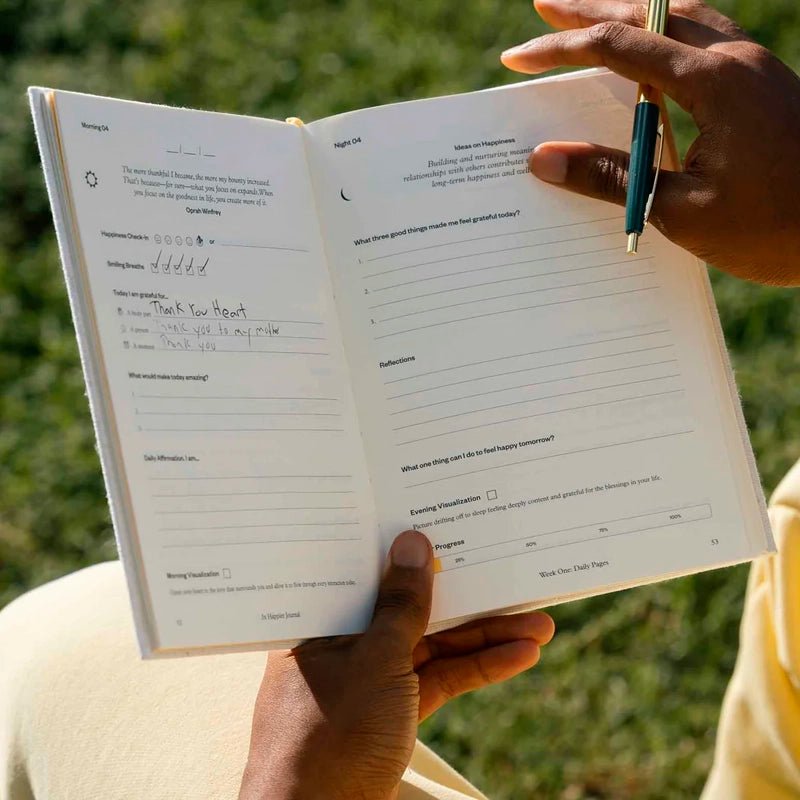 Morning 04
The more thankful I became, the more my bounty increased.
That's because—for sure—what you focus on expands. When
you focus on the goodness in life, you create more of it.
Oprah Winfrey
Happiness Check-in or
Smiling Breaths
Today I am grateful for...
A body part Thank You Heart
A person Thank you to my mother
A moment Thank you
What would make today amazing?
Daily Affirmation. I am...
Morning Visualization
Open your heart to the love that surrounds you and allow it to flow through every interaction today.
52
Night 04
Ideas on Happiness
Building and nurturing
relationships with others contributes
long-term happiness and
What three good things made me feel grateful today?
1.
2.
3.
Reflections
What one thing can I do to feel happy tomorrow?
Evening Visualization
Picture drifting off to sleep feeling deeply content and grateful for the blessings in your life.
Progress
25% 50% 75% 100%
Week One: Daily Pages
53